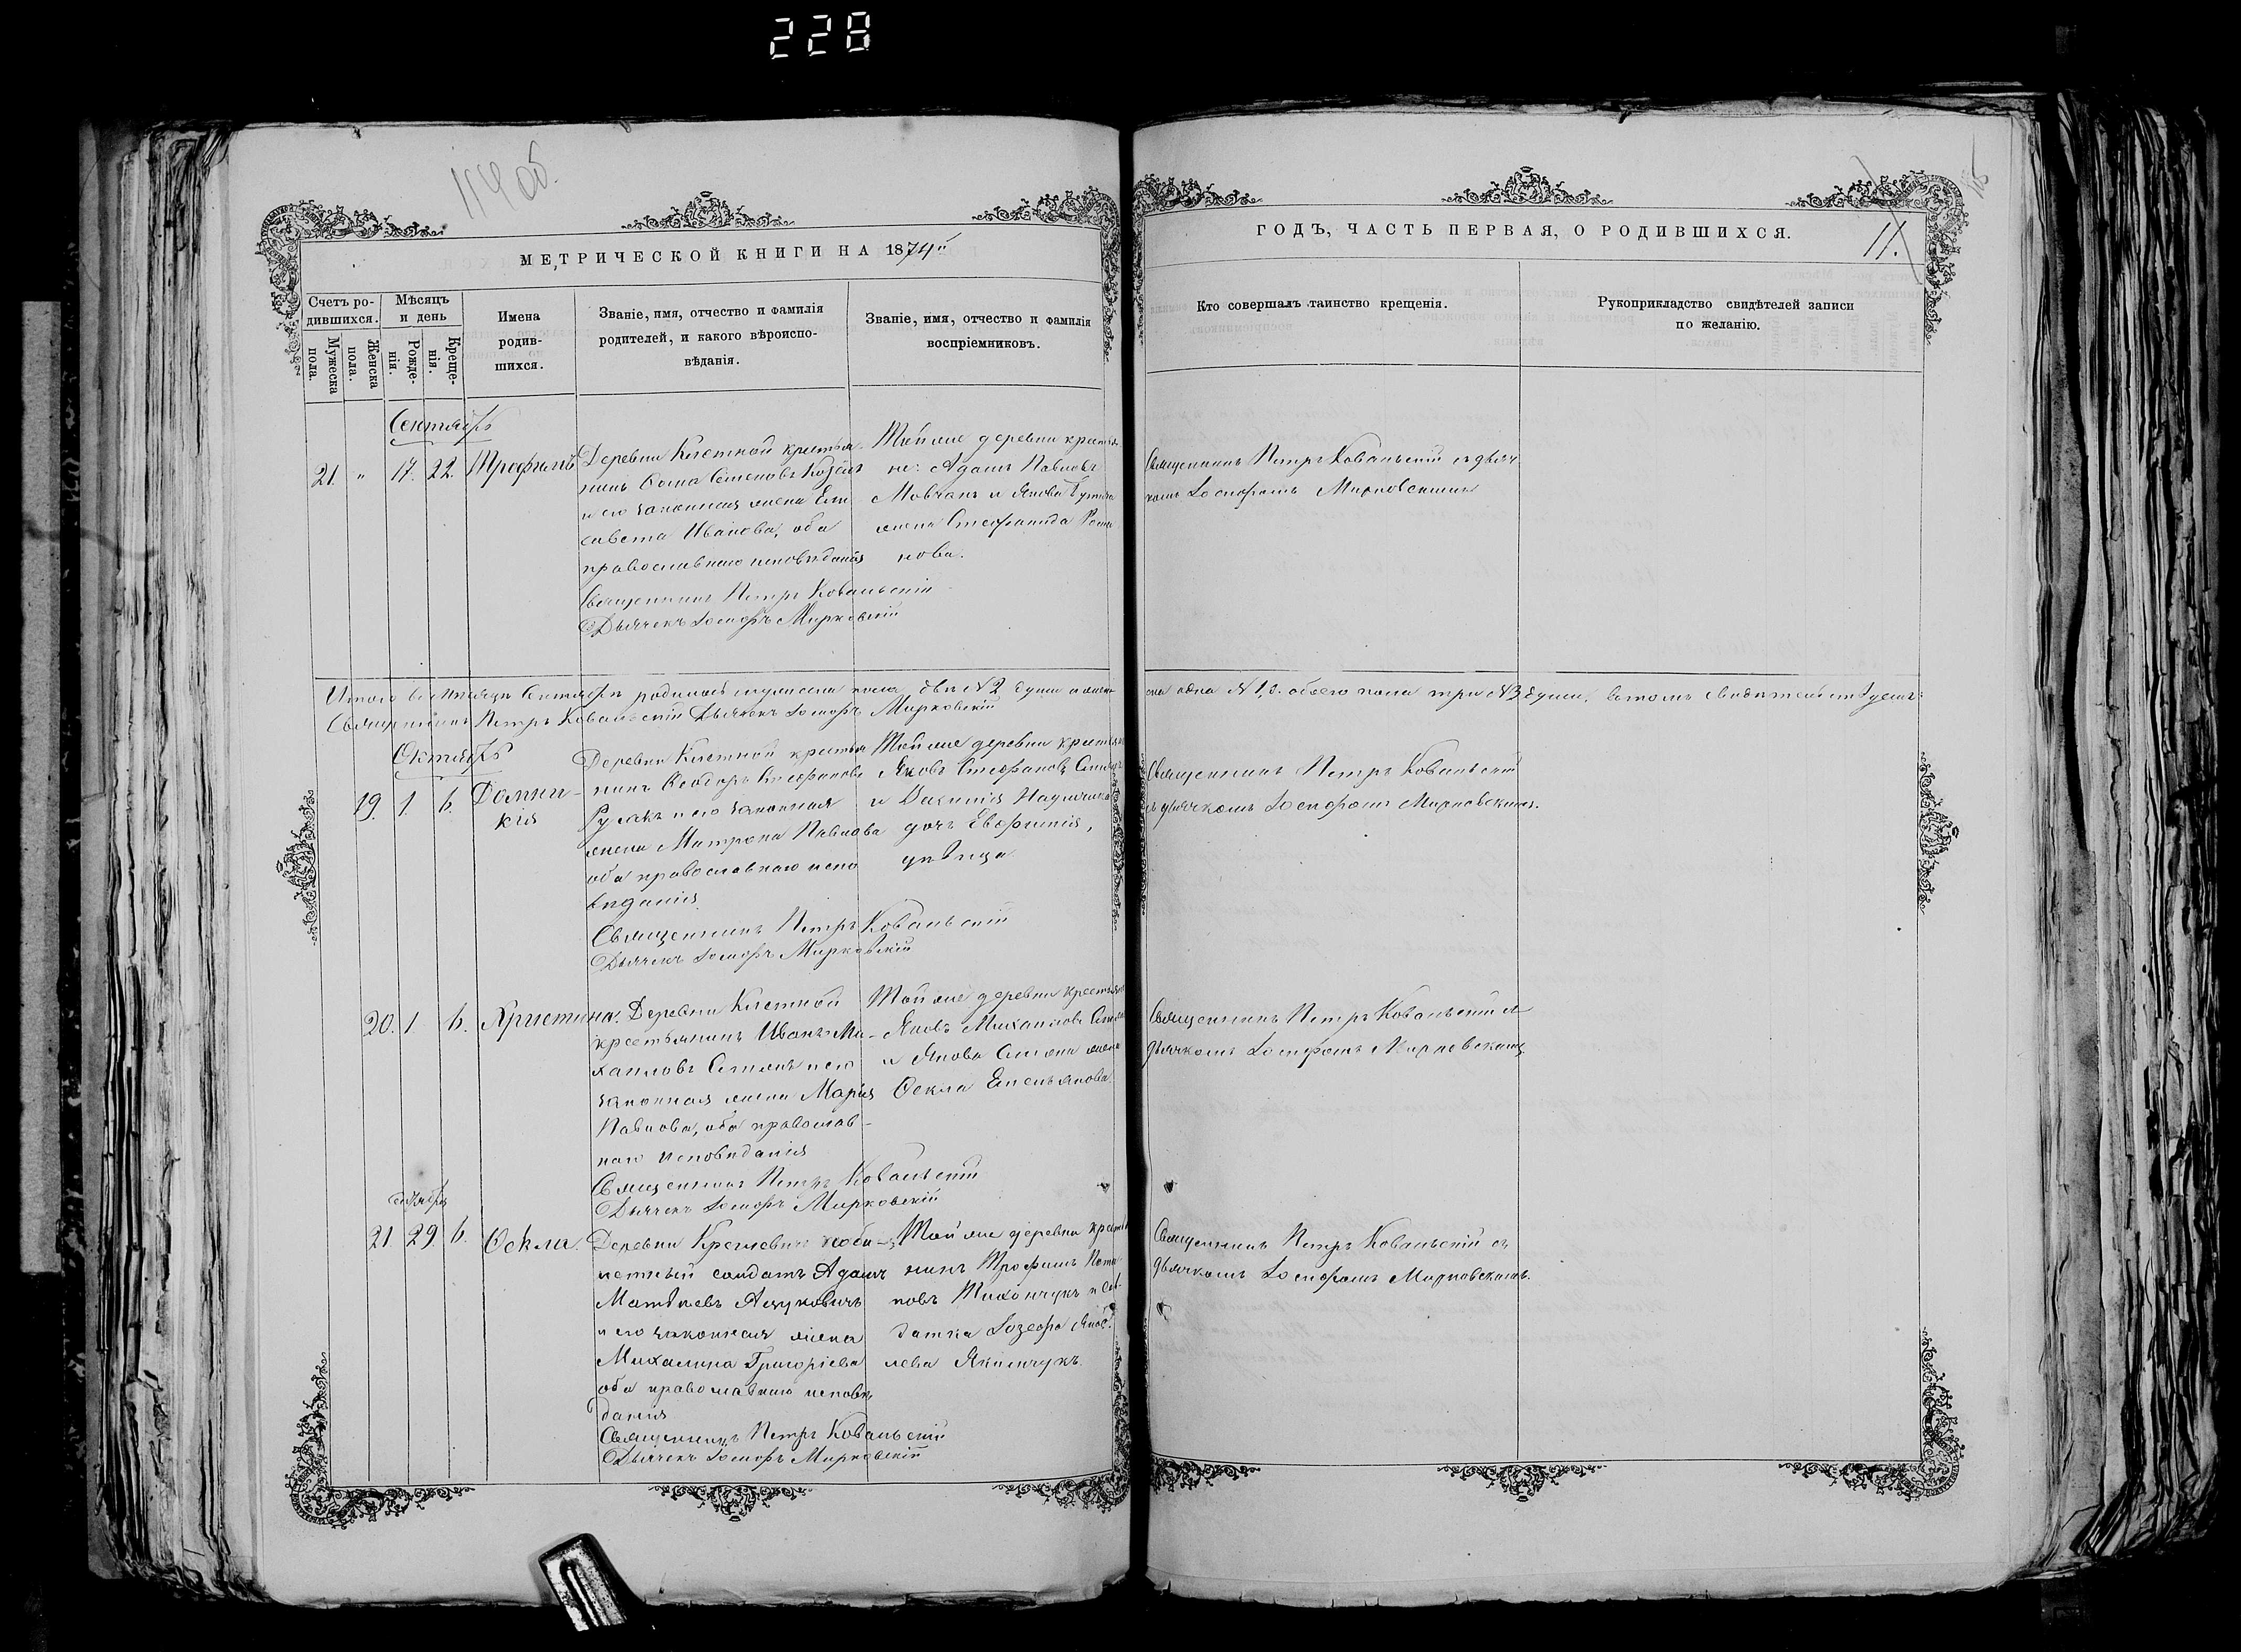 228
114 об.
115
МЕТРИЧЕСКОЙ КНИГИ НА 1874й
ГОДЪ, ЧАСТЬ ПЕРВАЯ, О РОДИВШИХСЯ.
11.
Счетъ ро-
дившихся.
Мужеска
пола.
Женска
пола.
Мѣсяцъ
и день
Рожде-
нія.
Креще-
нія.
Имена
родив-
шихся.
Званіе, имя, отчество и фамилія
родителей, и какого вѣроиспо-
вѣданія.
Званіе, имя, отчество и фамилія
воспріемниковъ.
Кто совершалъ таинство крещенія.
Рукоприкладство свидѣтелей записи
по желанію.
Сентябрь
21. " 17. 22. Трофимъ
Деревни Клетной крестья-
нинъ Ѳома Семеновъ
и его законная жена Ели
савета Иванова, оба
православнаго исповѣданія
Священникъ Петръ Ковальскій
Дьячекъ Іосифъ Мирковскій
Той же деревни крестья
не: Адамъ Павловъ
Мовчанъ и Якова
жена Стефанида Рома
нова.
Священникъ Петръ Ковальскій съ дьяч
комъ Іосифомъ Мирковскимъ
Итого въ мѣсяцѣ Сентябрѣ родилось мужеска пола двѣ №2 души а женс
ка одна №1, а обоего пола три №3 души, въ томъ свидѣтельствуемъ:
Священникъ Петръ Ковальскій Дьячекъ Іосифъ Мирковскій
Октябрь
19. 1. 6. Домни-
кія
Деревни Клетной крестья
нинъ Ѳеодоръ Стефановъ
Русакъ и его законная
жена Матрона Павлова
оба православнаго испо
вѣданія.
Священникъ Петръ Ковальскій
Дьячекъ Іосифъ Мирковскій
Той же деревни крестья
Яковъ Стефановъ
и
дочь Евфимія,
дѣвица
Священникъ Петръ Ковальскій
съ дьячкомъ Іосифомъ Мирковскимъ.
20. 1 6. Христина.
Деревни Клетной
крестьянинъ Иванъ Ми-
хаиловъ и его
законная жена Марія
Павлова, оба православ-
наго исповѣданія
Священникъ Петръ Ковальскій
Дьячекъ Іосифъ Мирковскій
Той же деревни крестьяне
Яковъ Михаиловъ
и Якова жена
Ѳекла Емельянова
Священникъ Петръ Ковальскій съ
дьячкомъ Іосифомъ Мирковскимъ
сентября
21. 29. 6. Ѳекла.
Деревни
солдатъ Адамъ
Матвѣевъ
и его законная жена
Михалина Григоріева
оба православнаго исповѣ
данія
Священникъ Петръ Ковальскій
Дьячекъ Іосифъ Мирковскій
Той же деревни крестья
нинъ Трофимъ
и сол-
датка Іозефа
Священникъ Петръ Ковальскій съ
дьячкомъ Іосифомъ Мирковскимъ.